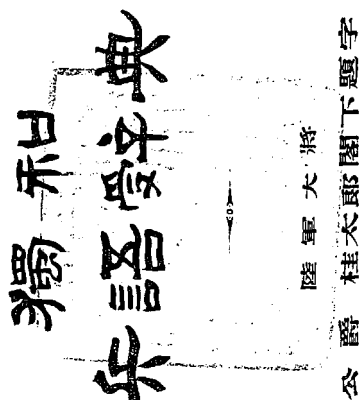 獨和
兵語辤典
陸軍大將
公爵 桂太郎閣下題字